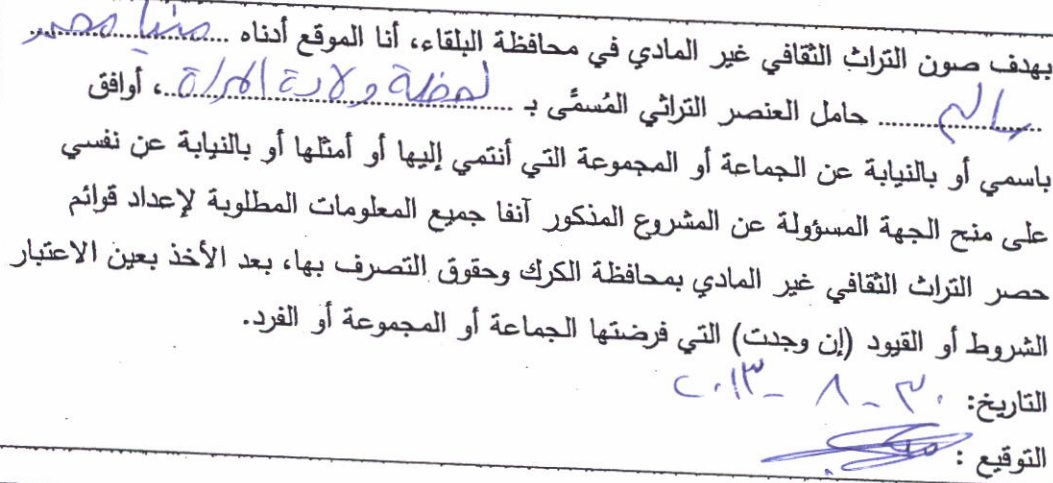 بهدف صون التراث الثقافي غير المادي في محافظة البلقاء، أنا الموقع أدناه ......
سالم ...... حامل العنصر التراثي المُسمَّى بـ ...... لحظة ولادة المرأة ......، أوافق
باسمي أو بالنيابة عن الجماعة أو المجموعة التي أنتمي إليها أو أمثلها أو بالنيابة عن نفسي
على منح الجهة المسؤولة عن المشروع المذكور آنفا جميع المعلومات المطلوبة لإعداد قوائم
حصر التراث الثقافي غير المادي بمحافظة الكرك وحقوق التصرف بها، بعد الأخذ بعين الاعتبار
الشروط أو القيود (إن وجدت) التي فرضتها الجماعة أو المجموعة أو الفرد.
التاريخ: ٣٠ - ٨ - ٢٠١٣
التوقيع :